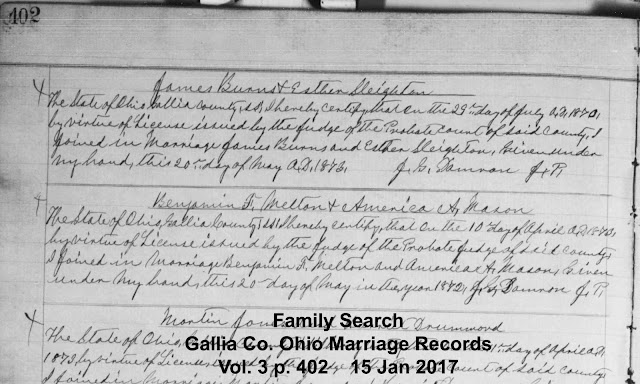 402
James Burns & Esther Sleighton
The State of Ohio, Gallia County, SS, I hereby certify that on the 29th day of July A.D, 1870,
by virtue of License issued by the Judge of the Probate Court of said County, I
joined in Marriage James Burns and Esther Sleighton, Given under
my hand, this 20th day of May A.D, 1873, J. G. Damron J, P,
Benjamin F, Melton & America A, Mason
The State of Ohio, Gallia County, SS, I hereby certify, that on the 10 day of April A.D, 1870,
by virtue of License issued by the Judge of the Probate Judge of said County,
I joined in Marriage Benjamin F, Melton and America A, Mason, Given
under my hand, this 20th day of May in the year 1872, J. G. Damron J, P,
Martin Drummond
The State of Ohio, day of April A.D.
1873, by virtue of License issued by the Judge of the Probate Court of said County
I joined in Marriage
Family Search
Gallia Co. Ohio Marriage Records
Vol. 3 p. 402 15 Jan 2017